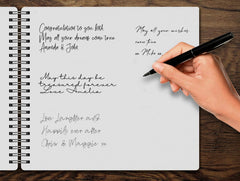 Congratulations to you both
May all your dreams come true
Amanda & John
May all your wishes
come true
May this day be
treasured forever
Love Amelia
Happily ever after
Chris & Maggie xx